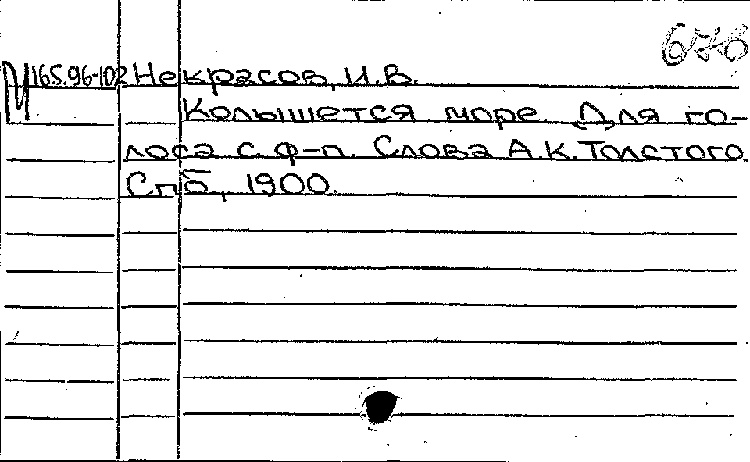 678
М 165.96-102 Некрасов, И.В.
Колышется море Для го-
лоса с ф-п. Слова А.К.Толстого.
Спб., 1900.